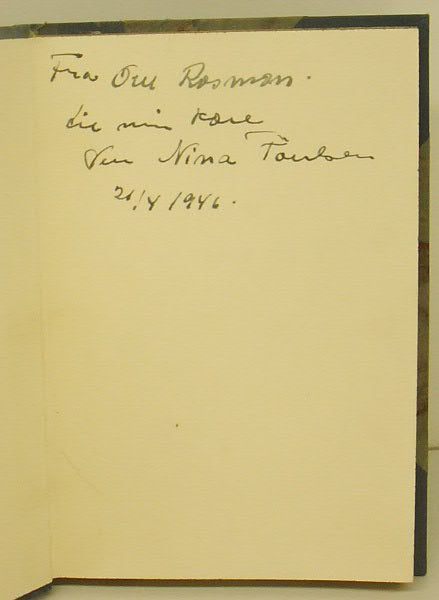 Fra Oll Rosman.
til min kære
Ven Nina Poulsen
20/4 1946.